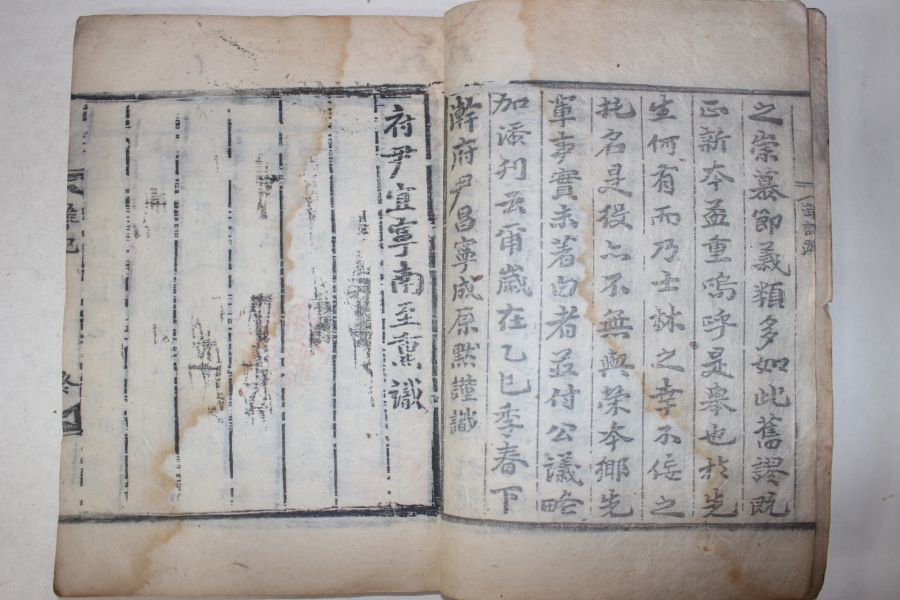 之崇慕節義類多如此舊謬既
正新本益重嗚呼是擧也於先
生何有而乃士林之幸不侫之
托名是役亦不無與榮本鄕先
軰事實未著白者並付公議略
加添刊云爾歲在乙巳季春下
澣府尹昌寧成原默謹識
府尹宜寧南至熏識